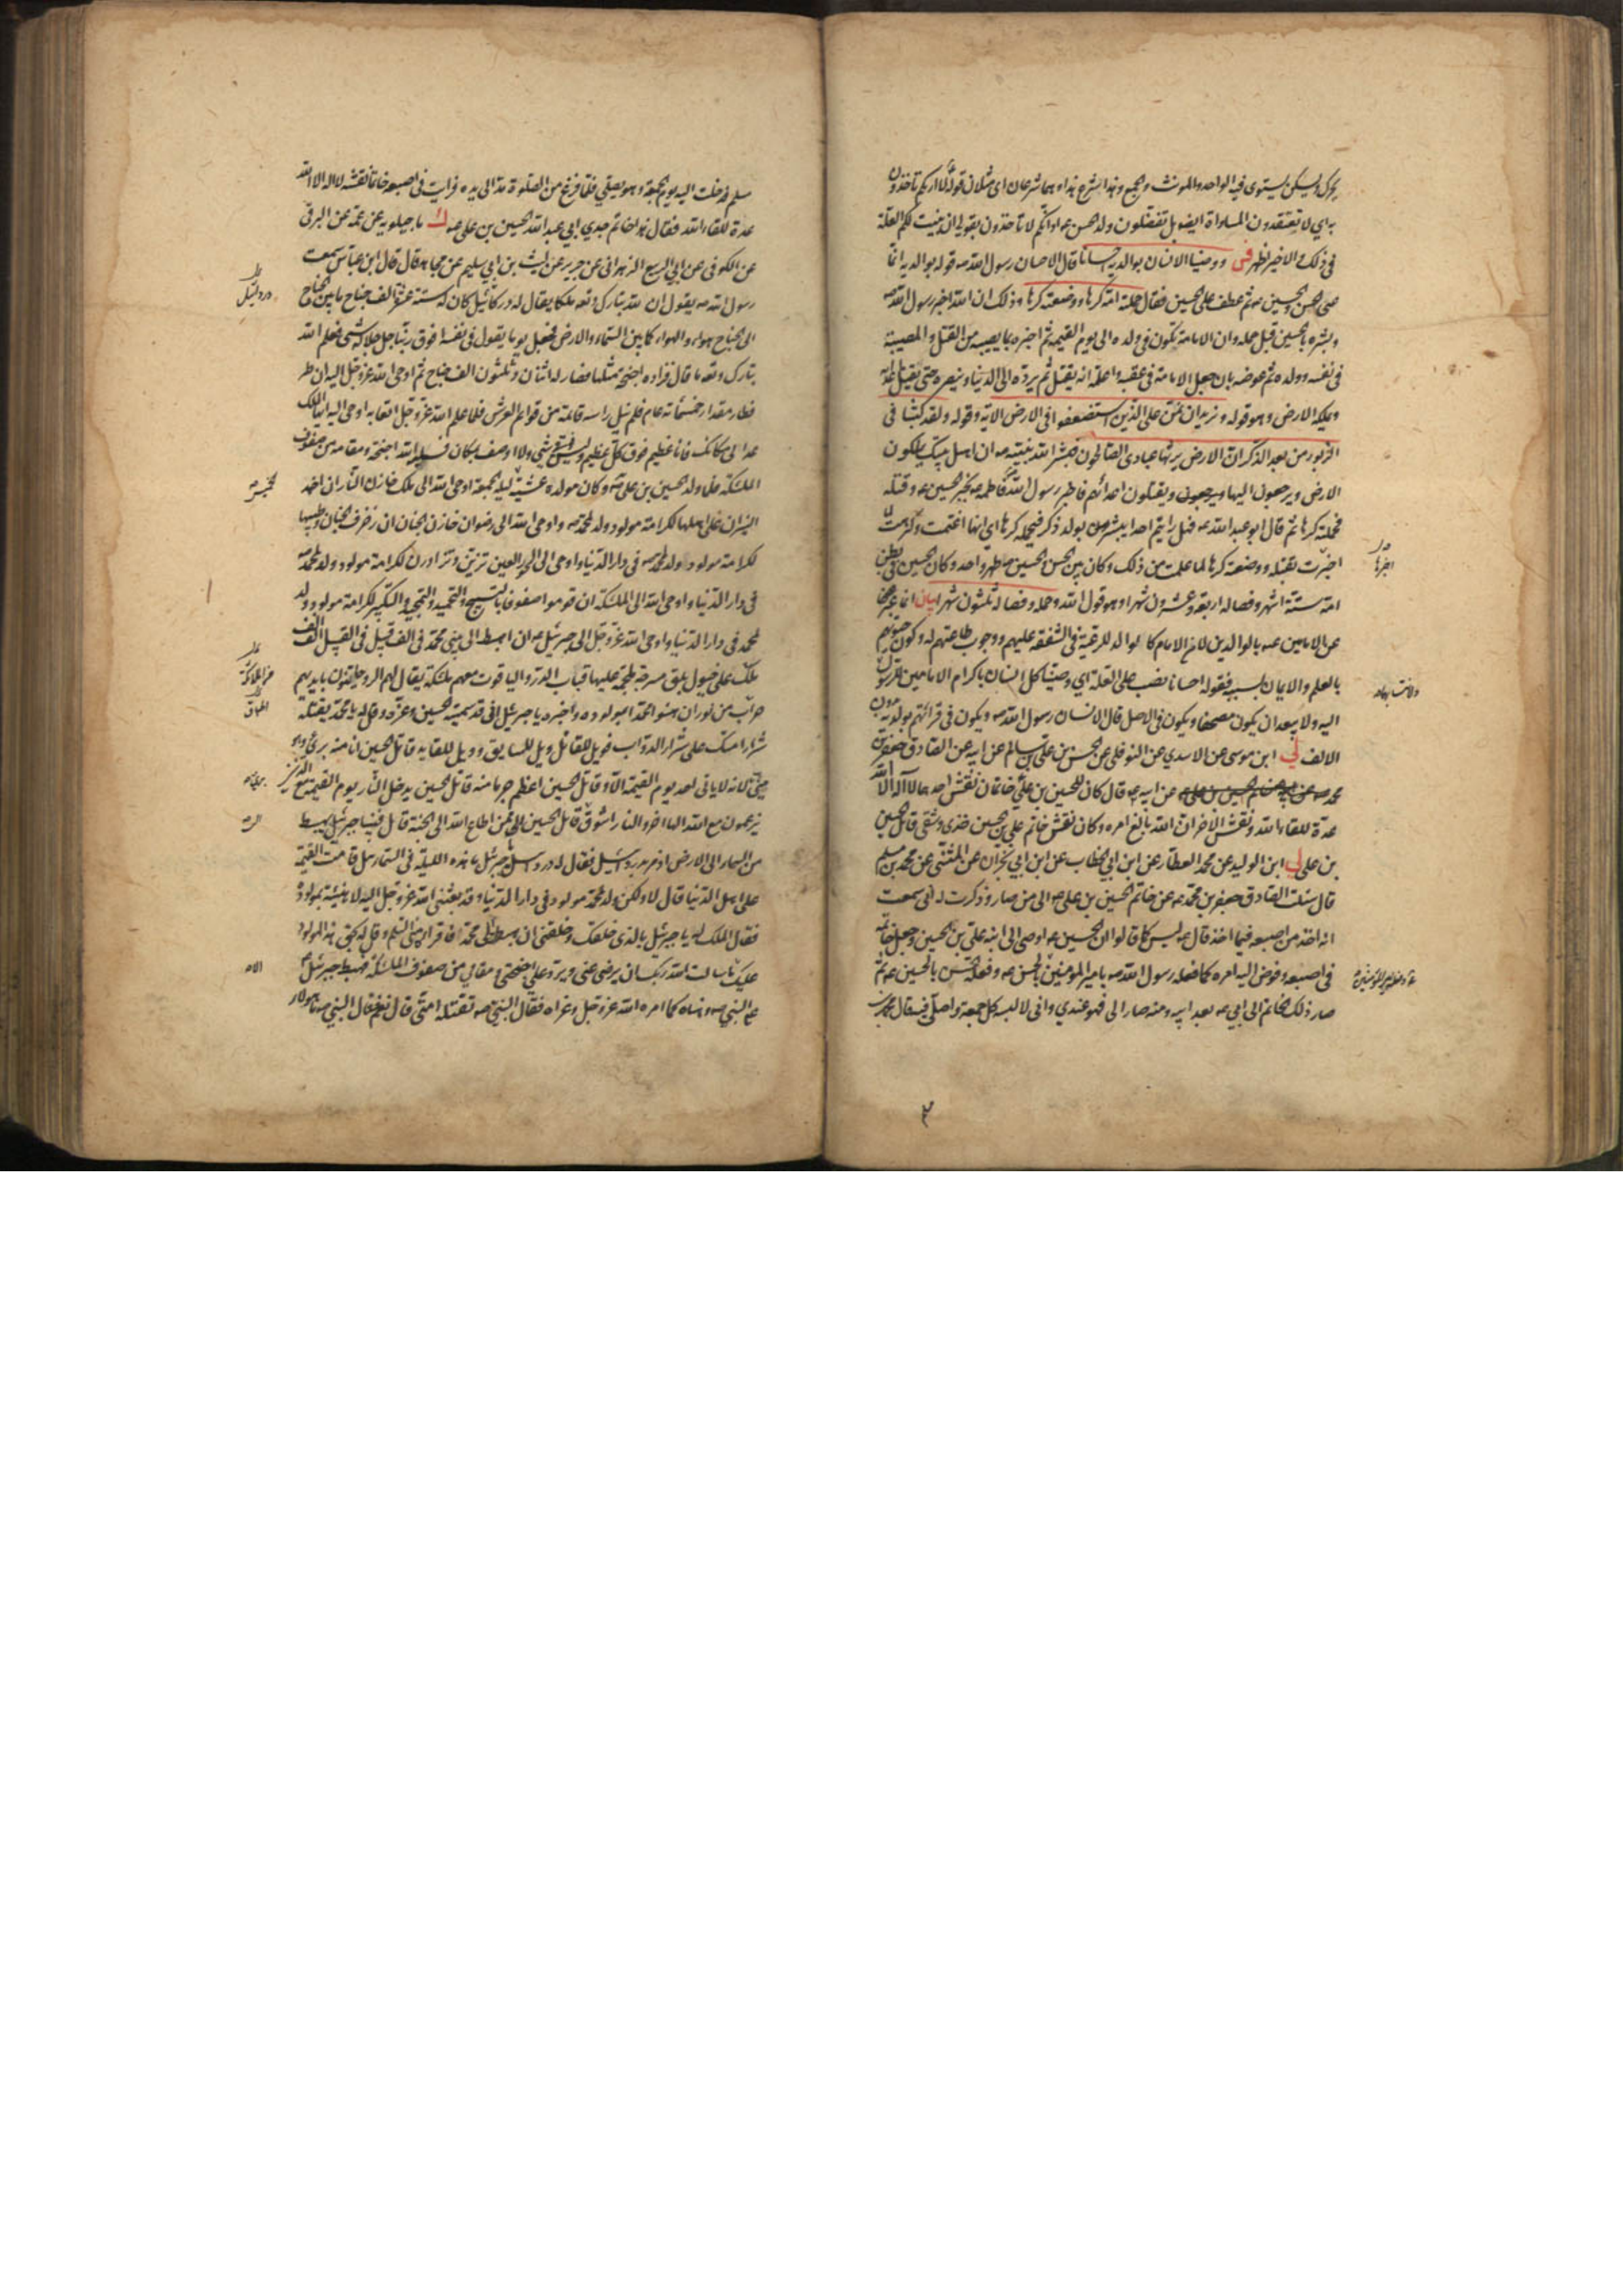 يحرك ويسكن يستوى فيه الواحد والمونث والجمع وهذا شرع هذا وهما شرعان اى مثلان قوله لا اراكم تاخذون
به اى لا تعتقدون المساواة ايضا بل تفضلون ولد الحسن او انكم لا تأخذون بقولى ان بينت لكم العلة
فى ذلك والاخير اظهر فس ووصينا الانسان بوالديه احسانا قال الاحسان رسول الله ص قوله بوالديه انما
عنى الحسن والحسين ع ثم عطف على الحسين فقال حملته امه كرها ووضعته كرها وذلك ان الله اخبر رسول الله ص
وبشره بالحسين قبل حمله وان الامامة تكون فى ولده الى يوم القيمة ثم اخبره بما يصيبه من القتل والمصيبة
فى نفسه وولده ثم عوضه بان جعل الامامة فى عقبه واعلمه انه يقتل ثم يرده الى الدنيا وينصره حتى يقتل اعداءه
ويملكه الارض وهو قوله ونريد ان نمن على الذين استضعفوا فى الارض الاية وقوله ولقد كتبنا فى
الزبور من بعد الذكر ان الارض يرثها عبادى الصالحون فبشر الله نبيه ص ان اهل بيتك يملكون
الارض ويرجعون اليها ويقتلون اعدائهم فاخبر رسول الله ص فاطمة ع بخبر الحسين ع وقتله
فحملته كرها ثم قال ابو عبد الله ع فهل رايتم احدا يبشر بولد ذكر فيحمله كرها اى انها اغتمت وكرهت لما
اخبرت بقتله ووضعته كرها لما علمت من ذلك وكان بين الحسن والحسين ع طهر واحد وكان الحسين ع فى بطن
امه ستة اشهر وفصاله اربعة وعشرون شهرا وهو قول الله وحمله وفصاله ثلثون شهرا بيان انما عبر هنا
عن الامامين ع بالوالدين لان الامام كالوالد للرعية فى الشفقة عليهم ووجوب طاعتهم له وكون حيوتهم
بالعلم والايمان بسببه فقوله احسانا نصب على العلة اى وصينا كل انسان باكرام الامامين للرسول
اليه ولا يبعد ان يكون مصحفا ويكون فى الاصل قال الانسان رسول الله ص ويكون فى قرائتهم بولديه بدون
الالف لى ابن موسى عن الاسدى عن النوفلى عن الحسن بن على بن سالم عن ابيه عن الصادق جعفر بن
محمد عن ابيه ع قال كان للحسين بن على خاتمان نقش احدهما لا اله الا الله
عدة للقاء الله ونقش الاخر ان الله بالغ امره وكان نقش خاتم على بن الحسين خزى وشقى قاتل الحسين
بن على لى ابن الوليد عن محمد العطار عن ابن ابى الخطاب عن ابن ابى نجران عن المثنى عن محمد بن مسلم
قال سئلت الصادق جعفر بن محمد ع عن خاتم الحسين بن على ع الى من صار وذكرت له انى سمعت
انه اخذ من اصبعه فيما اخذ قال ع ليس كما قالوا ان الحسين ع اوصى الى ابنه على بن الحسين وجعل خاتمه
فى اصبعه وفوض اليه امره كما فعله رسول الله ص بامير المؤمنين ع وفعله امير المؤمنين بالحسن ع وفعله الحسن بالحسين ع ثم
صار ذلك الخاتم الى ابى ع بعد ابيه ومنه صار الى فهو عندى وانى لالبسه كل جمعة واصلى فيه قال محمد بن
مسلم فدخلت اليه يوم الجمعة وهو يصلى فلما فرغ من الصلوة مد الى يده فرايت فى اصبعه خاتما نقشه لا اله الا الله
عدة للقاء الله فقال هذا خاتم جدى ابى عبد الله الحسين بن على ع ك ماجيلويه عن عمه عن البرقى
عن الكوفى عن ابى الربيع الزهرانى عن جرير عن ليث بن ابى سليم عن مجاهد قال قال ابن عباس سمعت
رسول الله ص يقول ان لله تبارك وتعه ملكا يقال له دردائيل كان له ستة عشر الف جناح ما بين الجناح
الى الجناح هواء والهواء كما بين السماء والارض فجعل يوما يقول فى نفسه افوق ربنا جل جلاله شئ فعلم الله
تبارك وتعه ما قال فزاده اجنحة مثلها فصار له اثنان وثلثون الف جناح ثم اوحى الله عز وجل اليه ان طر
فطار مقدار خمسمائة عام فلم ينل راسه قائمة من قوائم العرش فلما علم الله عز وجل اتعابه اوحى اليه ايها الملك
عد الى مكانك فانا عظيم فوق كل عظيم وليس فوقى شئ ولا اوصف بمكان فسلبه الله اجنحته ومقامه من صفوف
الملئكة فلما ولد الحسين بن على ع وكان مولده عشية ليلة الجمعة اوحى الله الى ملك خازن النار ان اخمد
النيران على اهلها لكرامة مولود ولد لمحمد ص واوحى الله الى رضوان خازن الجنان ان زخرف الجنان وطيبها
لكرامة مولود ولد لمحمد ص فى دار الدنيا واوحى الى الحور العين تزين وتزاورن لكرامة مولود ولد لمحمد ص
فى دار الدنيا واوحى الله الى الملئكة ان قوموا صفوفا بالتسبيح والتحميد والتمجيد والتكبير لكرامة مولود ولد
لمحمد فى دار الدنيا واوحى الله عز وجل الى جبرئيل ع ان اهبط الى نبيى محمد فى الف قبيل فى القبيل الف الف
ملك على خيول بلق مسرجة ملجمة عليها قباب الدر والياقوت معهم ملئكة يقال لهم الروحانيون بايديهم
حراب من نور ان هنئوا محمدا بمولوده واخبره يا جبرئيل انى قد سميته الحسين وعزه وقل له يا محمد يقتله
شرار امتك على شرار الدواب فويل للقاتل وويل للسايق وويل للقايد قاتل الحسين انا منه برئ وهو
منى برئ لانه لا ياتى احد يوم القيمة الا وقاتل الحسين اعظم جرما منه قاتل الحسين يدخل النار يوم القيمة مع الذين
يزعمون مع الله الها اخر والنار اشوق الى قاتل الحسين ممن اطاع الله الى الجنة قال فبينا جبرئيل يهبط
من السماء الى الارض اذ مر بدردائيل فقال له دردائيل يا جبرئيل ما هذه الليلة فى السماء هل قامت القيمة
على اهل الدنيا قال لا ولكن ولد لمحمد مولود فى دار الدنيا وقد بعثنى الله عز وجل اليه لاهنئه بمولوده
فقال الملك له يا جبرئيل بالذى خلقك وخلقنى ان هبطت الى محمد فاقراه منى السلم وقل له بحق هذا المولود
عليك الا ما سالت الله ربك ان يرضى عنى ويرد على اجنحتى ومقامى من صفوف الملئكة فهبط جبرئيل
على النبى ص وهناه كما امره الله عز وجل وعزاه فقال النبى ص تقتله امتى قال نعم فقال النبى ص ما هؤلاء